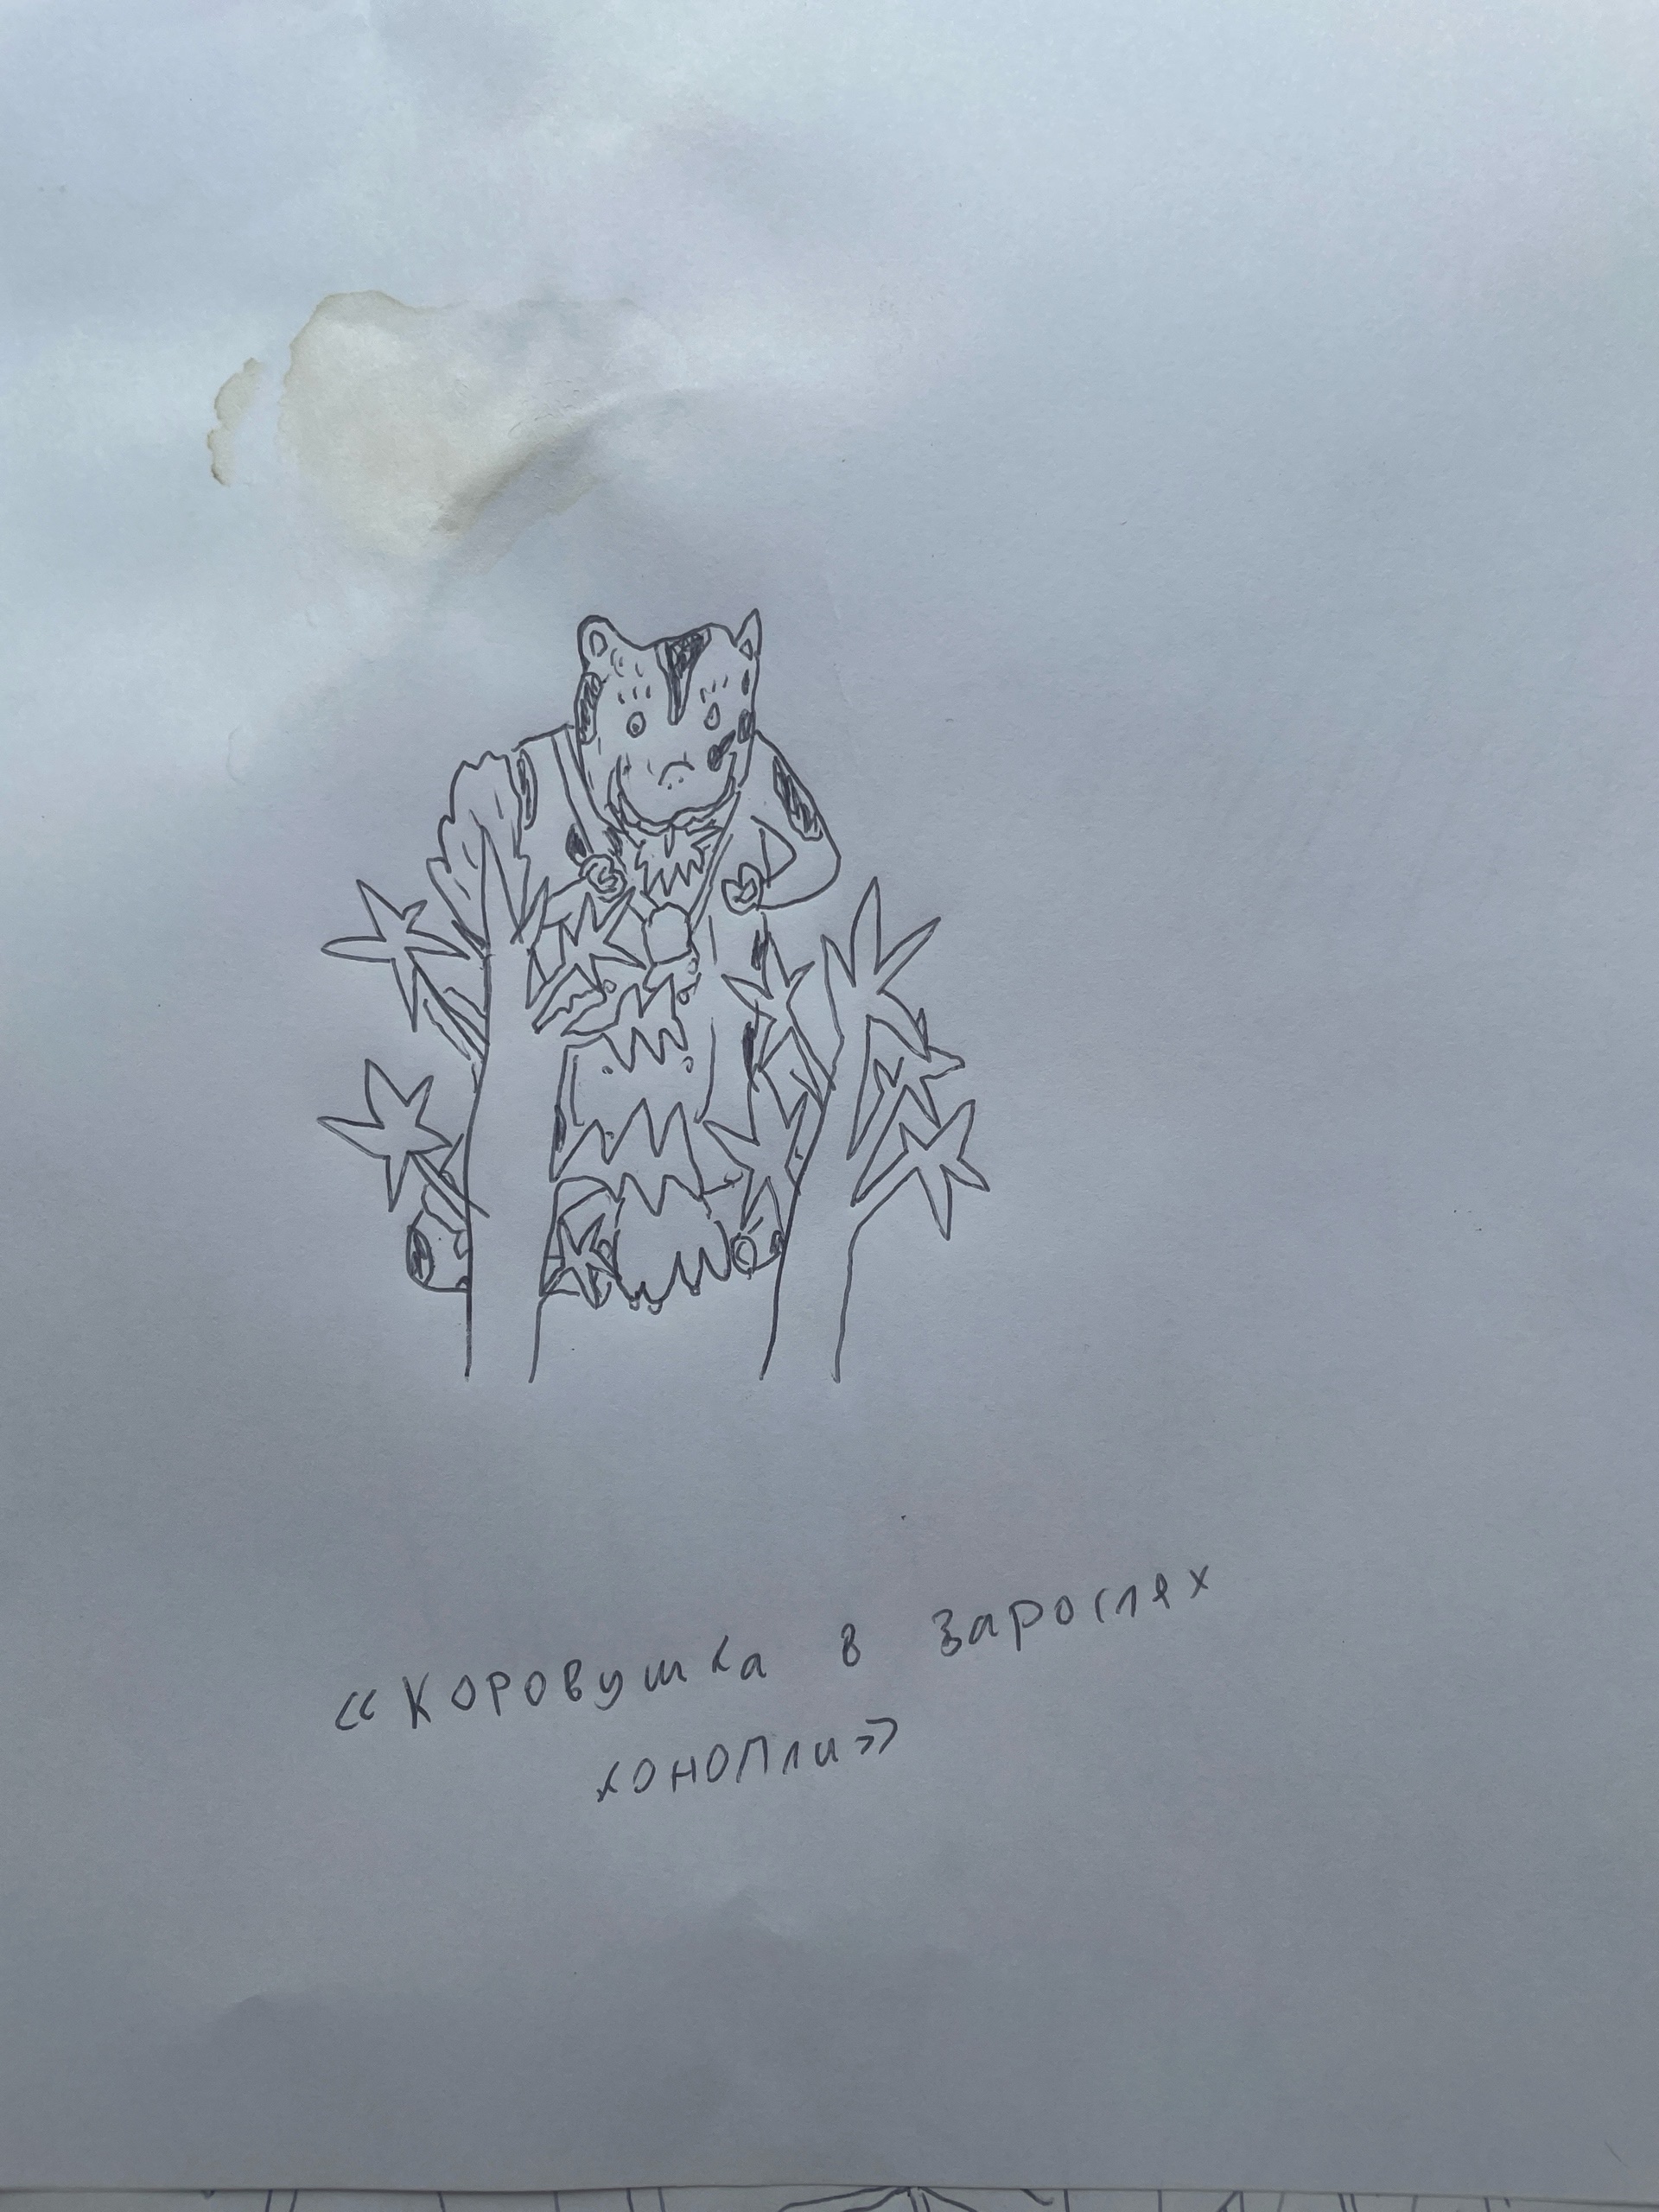 «Коровушка в зарослях
конопли»